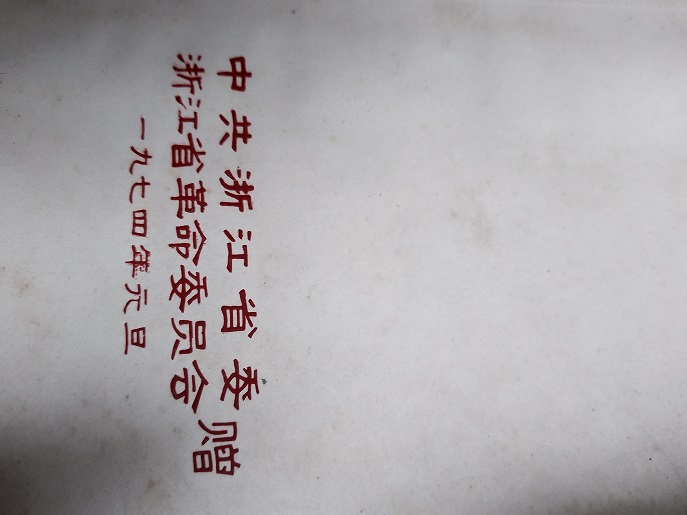 中共浙江省委
浙江省革命委员会
赠
一九七四年元旦